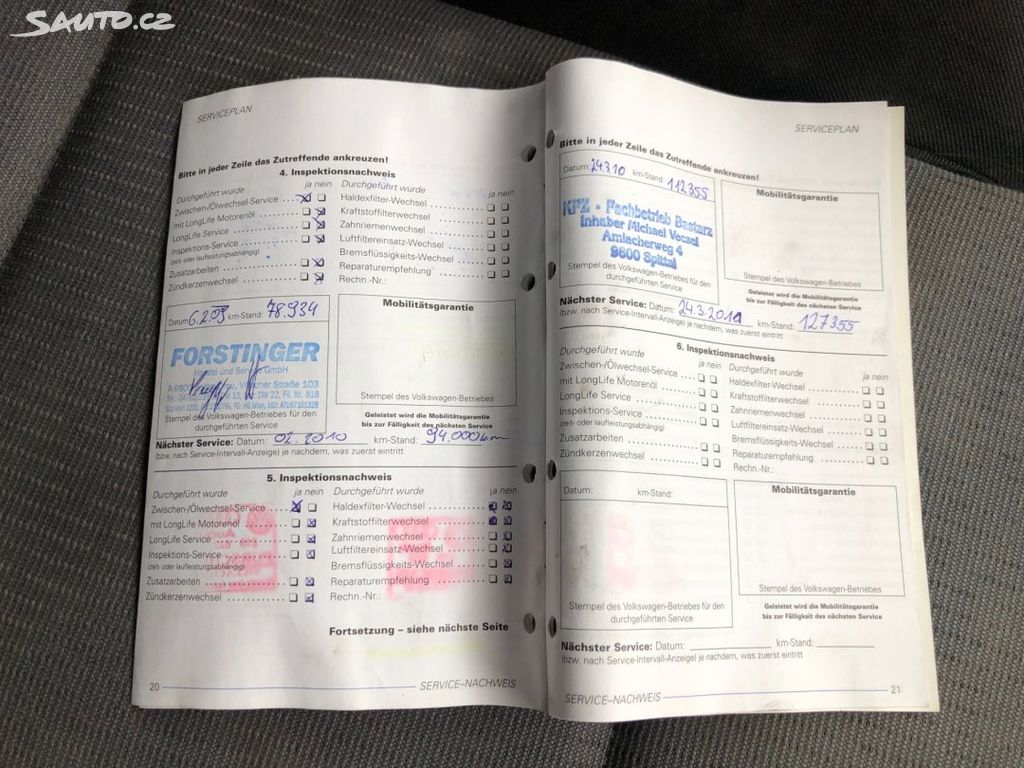 SAUTO.CZ
SERVICEPLAN
Bitte in jeder Zeile das Zutreffende ankreuzen!
4. Inspektionsnachweis
Durchgeführt wurde ja nein
Zwischen-/Ölwechsel-Service
mit LongLife Motorenöl
LongLife Service
Inspektions-Service
(zeit- oder laufleistungsabhängig)
Zusatzarbeiten
Zündkerzenwechsel
Durchgeführt wurde ja nein
Haldexfilter-Wechsel
Kraftstoffilterwechsel
Zahnriemenwechsel
Luftfiltereinsatz-Wechsel
Bremsflüssigkeits-Wechsel
Reparaturempfehlung
Rechn.-Nr.:
Datum 6.2.09 km-Stand: 78.934
FORSTINGER
Handel und Service GmbH
Straße 103
Stempel des Volkswagen-Betriebes für den
durchgeführten Service
Mobilitätsgarantie
Stempel des Volkswagen-Betriebes
Geleistet wird die Mobilitätsgarantie
bis zur Fälligkeit des nächsten Service
Nächster Service: Datum: 02.2010 km-Stand: 94.000km
(bzw. nach Service-Intervall-Anzeige) je nachdem, was zuerst eintritt
5. Inspektionsnachweis
Durchgeführt wurde ja nein
Zwischen-/Ölwechsel-Service
mit LongLife Motorenöl
LongLife Service
Inspektions-Service
(zeit- oder laufleistungsabhängig)
Zusatzarbeiten
Zündkerzenwechsel
Durchgeführt wurde ja nein
Haldexfilter-Wechsel
Kraftstoffilterwechsel
Zahnriemenwechsel
Luftfiltereinsatz-Wechsel
Bremsflüssigkeits-Wechsel
Reparaturempfehlung
Rechn.-Nr.:
Fortsetzung – siehe nächste Seite
20 SERVICE–NACHWEIS
SERVICEPLAN
Bitte in jeder Zeile das Zutreffende ankreuzen!
Datum: 24.3.10 km-Stand: 112355
KFZ - Fachbetrieb Bastarz
Inhaber Michael Veczel
Amlacherweg 4
9800 Spittal
Stempel des Volkswagen-Betriebes für den
durchgeführten Service
Mobilitätsgarantie
Stempel des Volkswagen-Betriebes
Geleistet wird die Mobilitätsgarantie
bis zur Fälligkeit des nächsten Service
Nächster Service: Datum: 24.3.2011 km-Stand: 127355
(bzw. nach Service-Intervall-Anzeige) je nachdem, was zuerst eintritt
6. Inspektionsnachweis
Durchgeführt wurde ja nein
Zwischen-/Ölwechsel-Service
mit LongLife Motorenöl
LongLife Service
Inspektions-Service
(zeit- oder laufleistungsabhängig)
Zusatzarbeiten
Zündkerzenwechsel
Durchgeführt wurde ja nein
Haldexfilter-Wechsel
Kraftstoffilterwechsel
Zahnriemenwechsel
Luftfiltereinsatz-Wechsel
Bremsflüssigkeits-Wechsel
Reparaturempfehlung
Rechn.-Nr.:
Datum: km-Stand:
Stempel des Volkswagen-Betriebes für den
durchgeführten Service
Mobilitätsgarantie
Stempel des Volkswagen-Betriebes
Geleistet wird die Mobilitätsgarantie
bis zur Fälligkeit des nächsten Service
Nächster Service: Datum: km-Stand:
(bzw. nach Service-Intervall-Anzeige) je nachdem, was zuerst eintritt
SERVICE–NACHWEIS 21